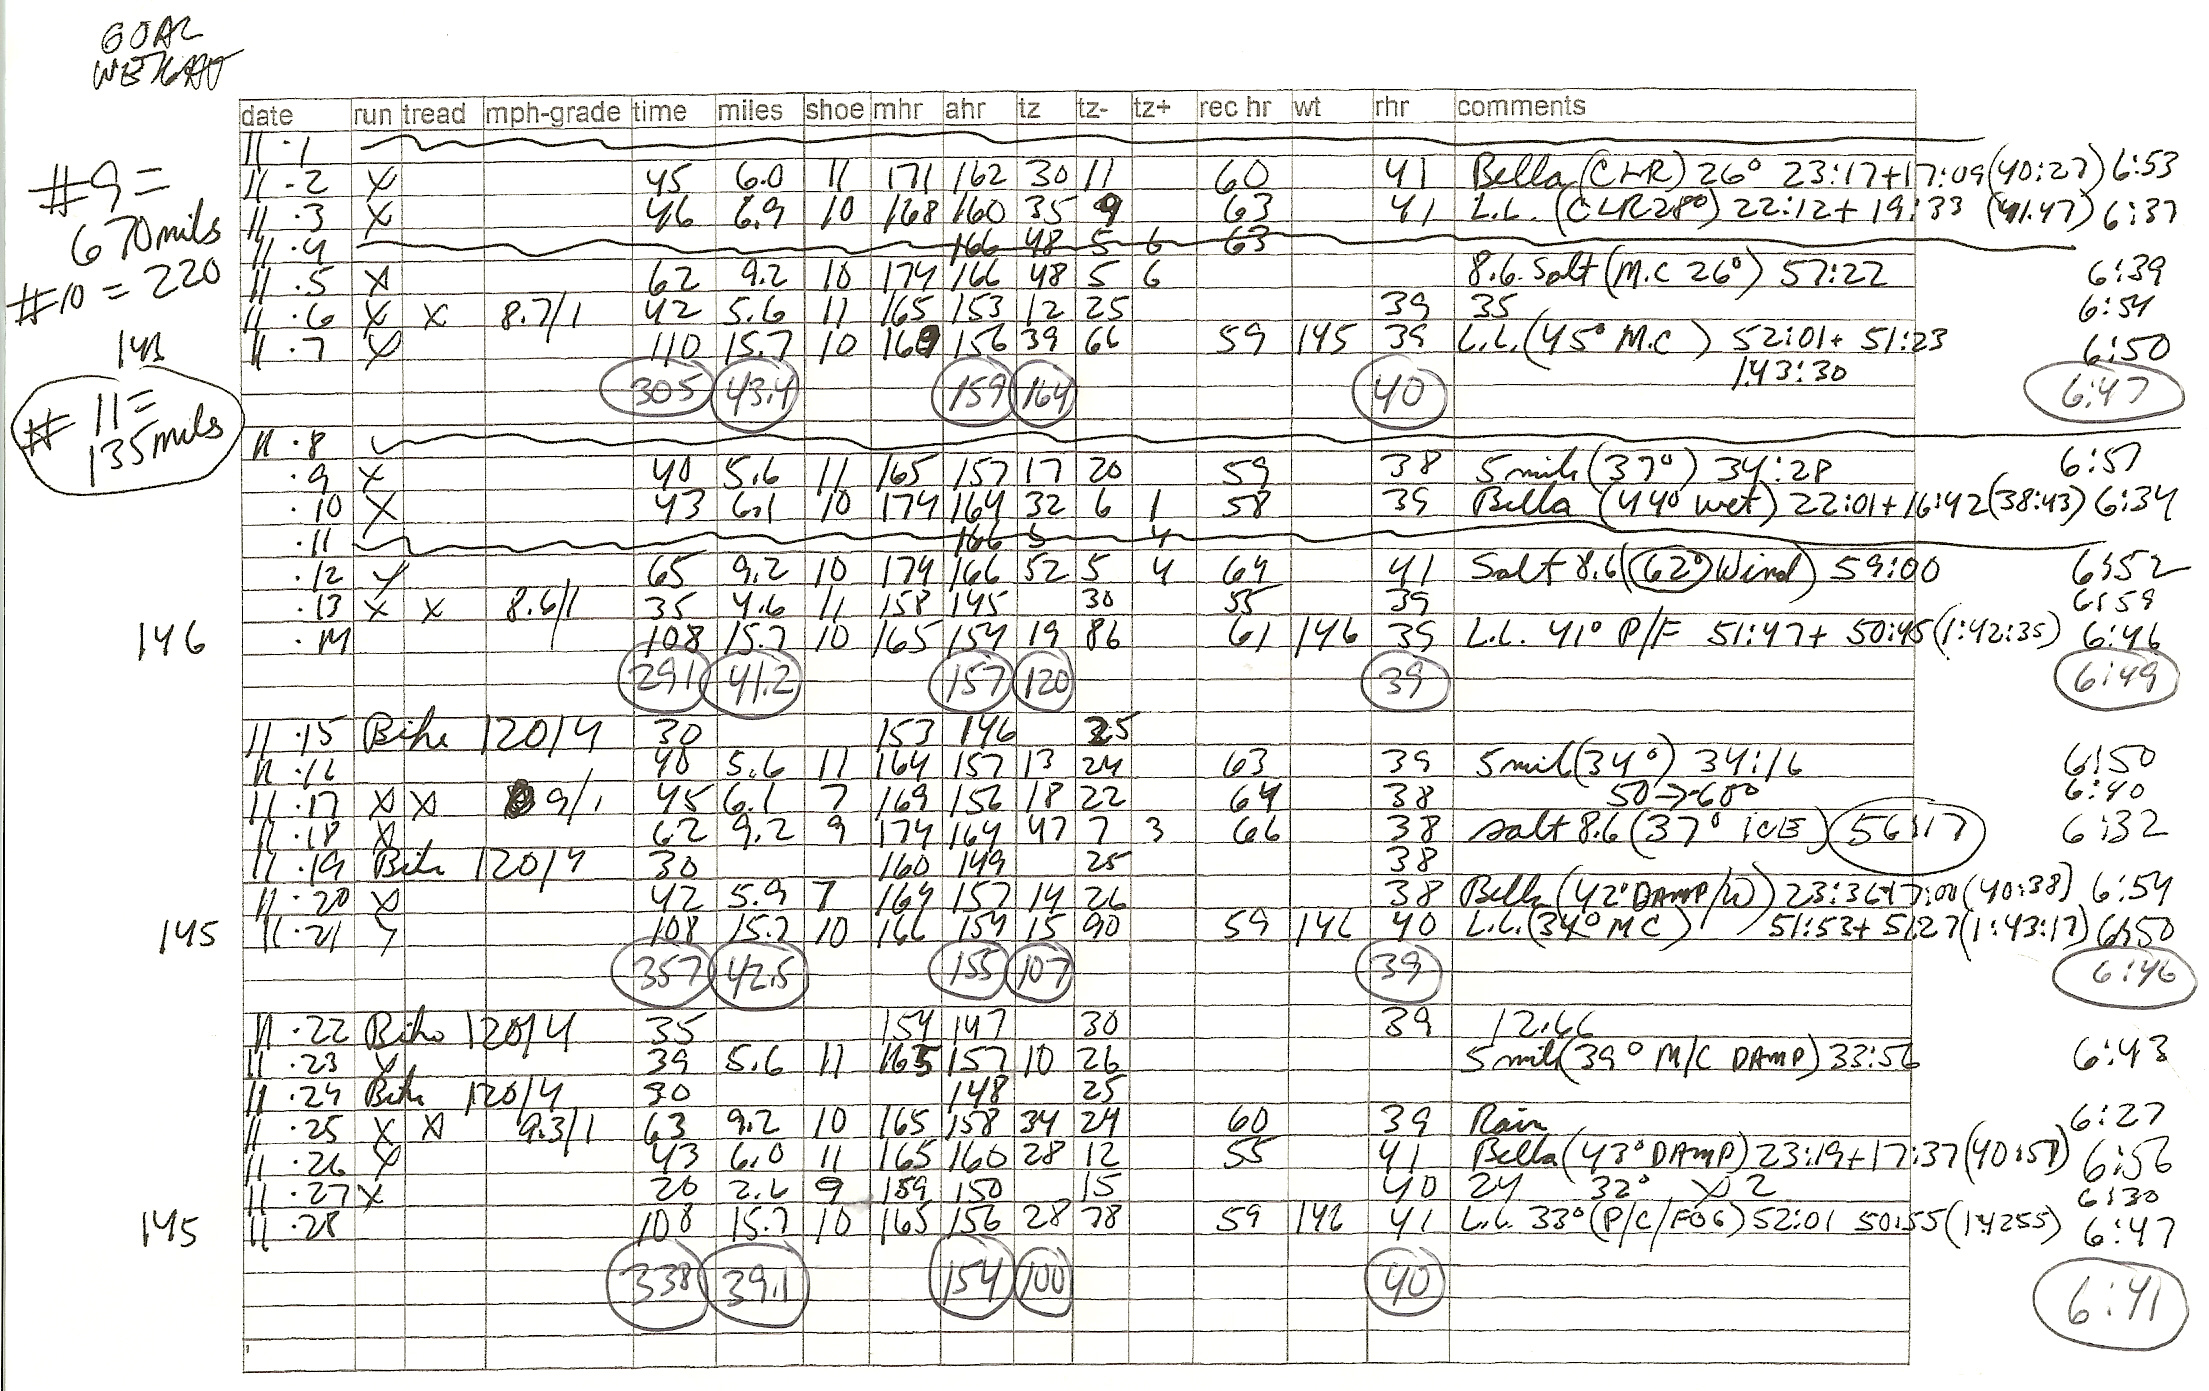 GOAL
WEIGHT
date run tread mph-grade time miles shoe mhr ahr tz tz- tz+ rec hr wt rhr comments
11.1
#9 =
670 mils
#10 = 220
143
# 11 =
135 mils
11.2 X 45 6.0 11 171 162 30 11 60 41 Bella (CLR) 26° 23:17+17:09 (40:27) 6:53
11.3 X 46 6.9 10 168 160 35 9 63 41 L.L. (CLR 28°) 22:12+ 19:33 (41.47) 6:37
11.4 166 48 5 6 63
11.5 X 62 9.2 10 174 166 48 5 6 8.6 Salt (M.C 26°) 57:22 6:39
11.6 X X 8.7/1 42 5.6 11 165 153 12 25 39 35 6:54
11.7 X 110 15.7 10 169 156 39 66 59 145 39 L.L. (45° M.C) 52:01+ 51:23 6:50
1:43:30
305 43.4 159 164 40 6:47
11.8
.9 X 40 5.6 11 165 157 17 20 59 38 5 mile (37°) 34:28 6:57
.10 X 43 6.1 10 174 164 32 6 1 58 39 Bella (44° wet) 22:01+16:42 (38:43) 6:34
.11 166 5 4
.12 X 65 9.2 10 174 166 52 5 4 64 41 Salt 8.6 (62° Wind) 59:00 6:52
.13 X X 8.6/1 35 4.6 11 158 145 30 55 39 6:59
146 .14 108 15.7 10 165 154 19 86 61 146 39 L.L. 41° P/F 51:47+ 50:45 (1:42:35) 6:46
291 41.2 157 120 39 6:49
11.15 Bike 120/4 30 153 146 25
11.16 40 5.6 11 164 157 13 24 63 39 5 mil (34°) 34:16 6:50
11.17 X X 9/1 45 6.1 7 169 156 18 22 64 38 50→60° 6:40
11.18 X 62 9.2 9 174 164 47 7 3 66 38 Salt 8.6 (37° ICE) 56:17 6:32
11.19 Bike 120/4 30 160 149 25 38
11.20 X 42 5.9 7 164 157 14 26 38 Bella (42° DAMP/W) 23:36+17:00 (40:38) 6:54
145 11.21 108 15.7 10 166 154 15 90 59 146 40 L.L. (34° MC) 51:53+ 51:27 (1:43:17) 6:50
357 42.5 155 107 39 6:46
11.22 Bike 120/4 35 154 147 30 39 12.66
11.23 X 39 5.6 11 165 157 10 26 5 mile (39° M/C DAMP) 33:56 6:43
11.24 Bike 120/4 30 148 25
11.25 X X 9.3/1 63 9.2 10 165 158 34 24 60 39 Rain 6:27
11.26 X 43 6.0 11 165 160 28 12 55 41 Bella (43° DAMP) 23:19+17:37 (40:57) 6:56
11.27 X 20 2.6 9 159 150 15 40 24 32° X 2 6:30
145 11.28 108 15.7 10 165 156 28 78 59 146 41 L.L. 33° (P/C/FOG) 52:01 50:55 (1:42 55) 6:47
338 39.1 154 100 40 6:41